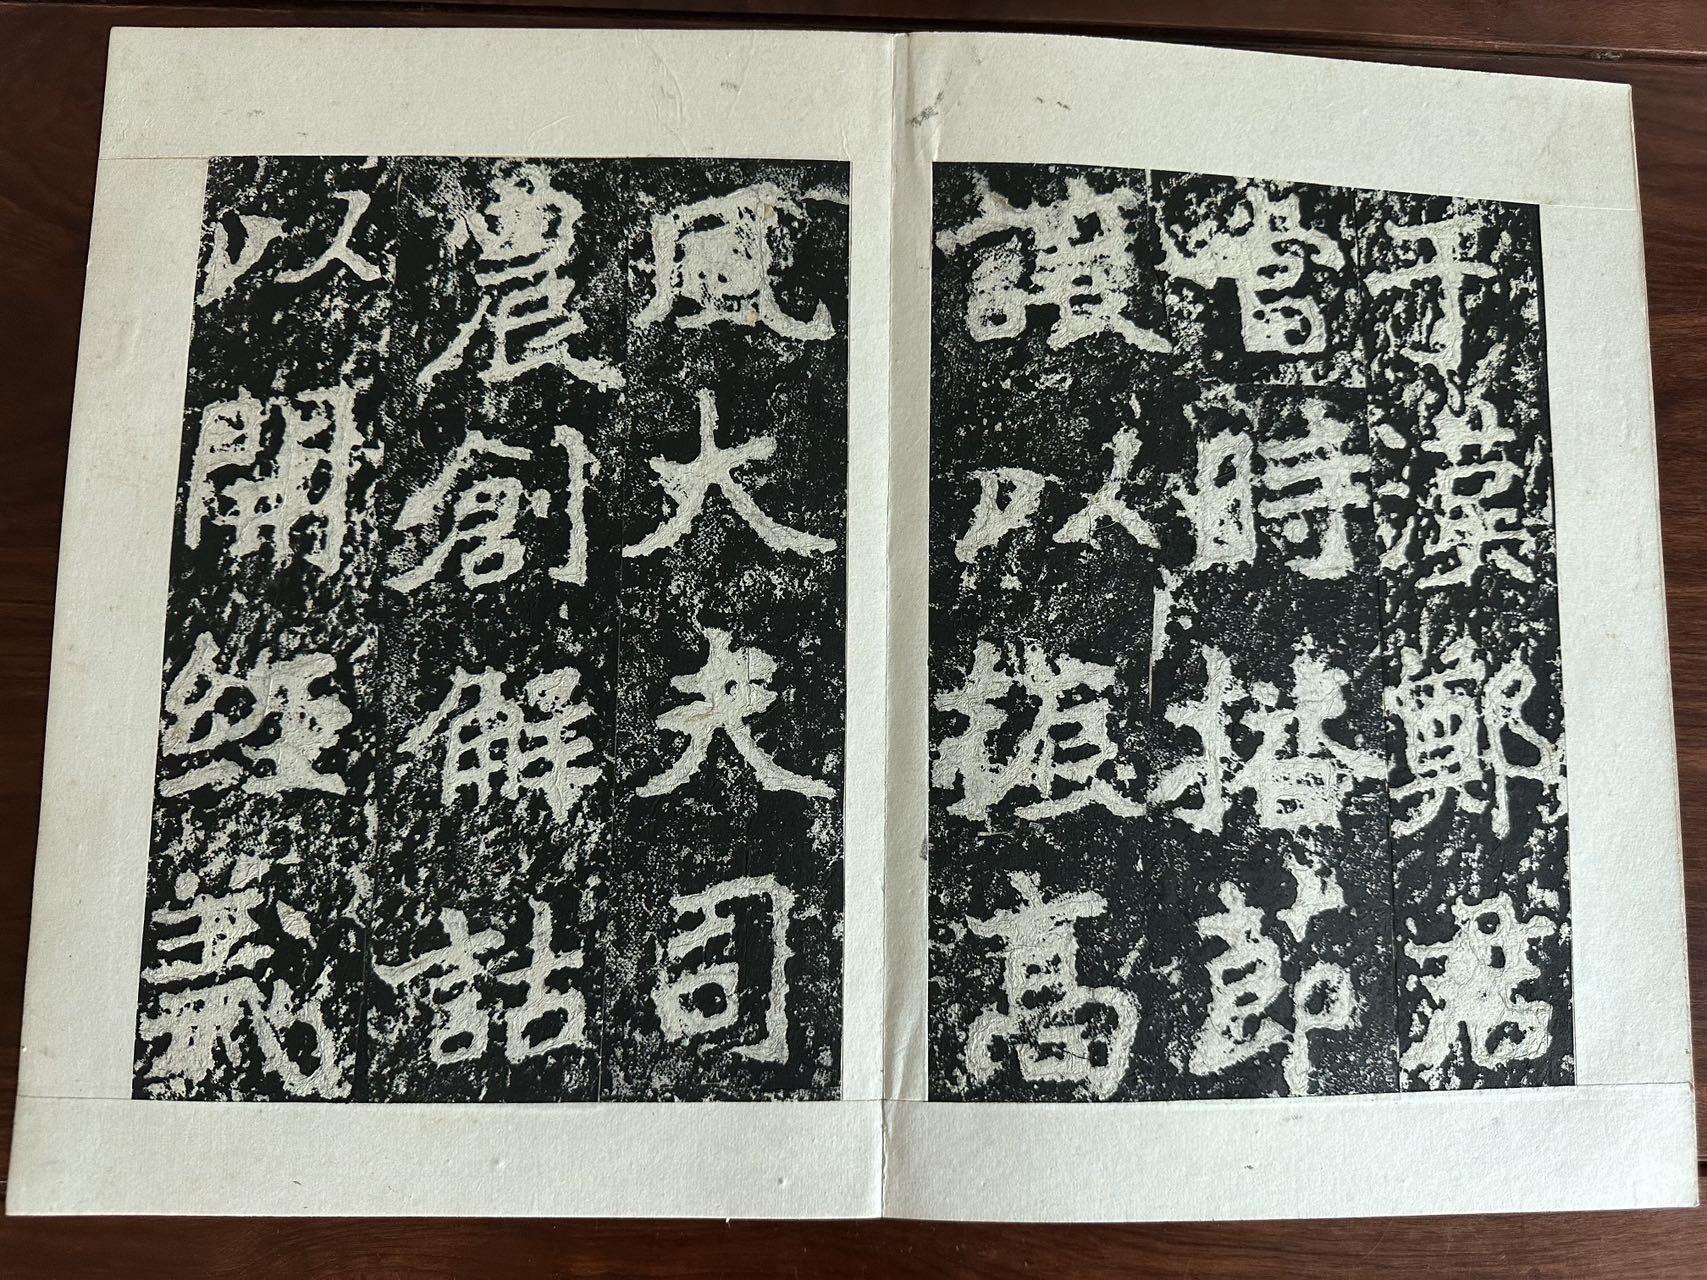 于漢鄭君
當時播節
讓以振高
風大夫司
農創解詁
以開經義